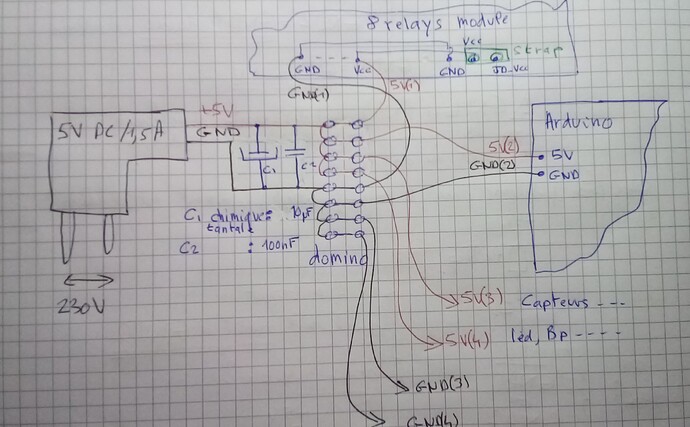 8 relays module
Vcc
strap
GND
Vcc
GND
JD-Vcc
5V(1)
GND(1)
+5V
5V DC/1,5A
GND
C1
C2
Arduino
5V(2)
5V
GND(2)
GND
C1 chimique: 10µF
tantale
C2 : 100nF
domino
230V
5V(3) Capteurs ---
5V(4) led, Bp ----
GND(3)
GND(4)